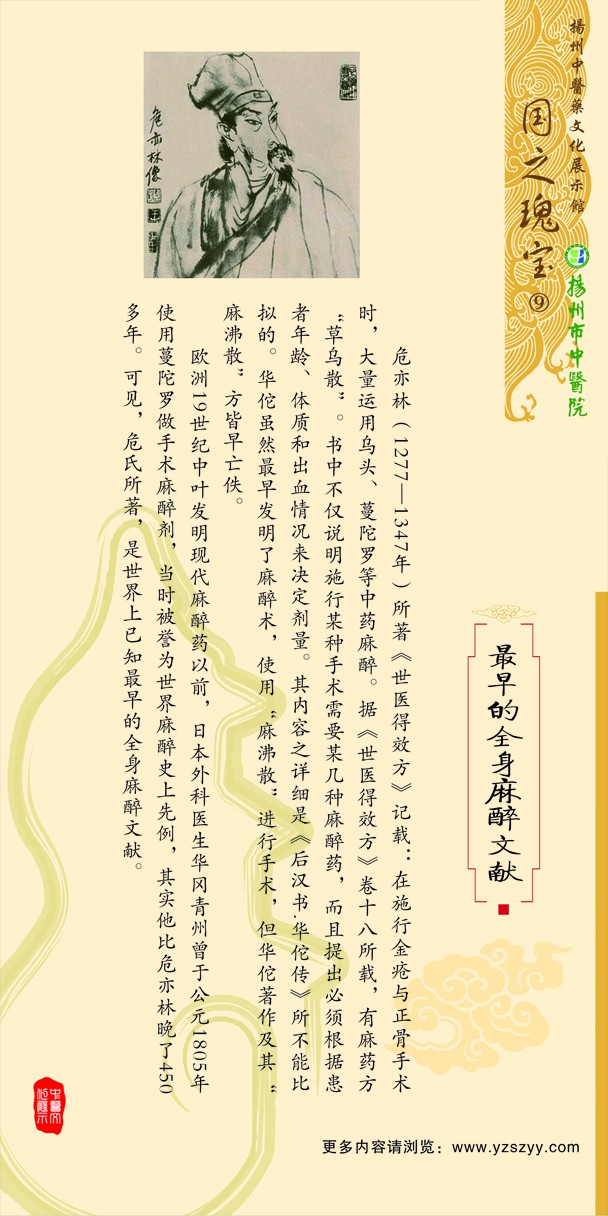 揚州中醫藥文化展示館
揚州市中醫院
国之瑰宝⑨
最早的全身麻醉文献
危亦林（1277—1347年）所著《世医得效方》记载：在施行金疮与正骨手术
时，大量运用乌头、蔓陀罗等中药麻醉。据《世医得效方》卷十八所载，有麻药方
“草乌散”。书中不仅说明施行某种手术需要某几种麻醉药，而且提出必须根据患
者年龄、体质和出血情况来决定剂量。其内容之详细是《后汉书.华佗传》所不能比
拟的。华佗虽然最早发明了麻醉术，使用“麻沸散”进行手术，但华佗著作及其“
麻沸散”方皆早亡佚。
欧洲19世纪中叶发明现代麻醉药以前，日本外科医生华冈青州曾于公元1805年
使用蔓陀罗做手术麻醉剂，当时被誉为世界麻醉史上先例，其实他比危亦林晚了450
多年。可见，危氏所著，是世界上已知最早的全身麻醉文献。
危亦林像
更多内容请浏览：www.yzszyy.com